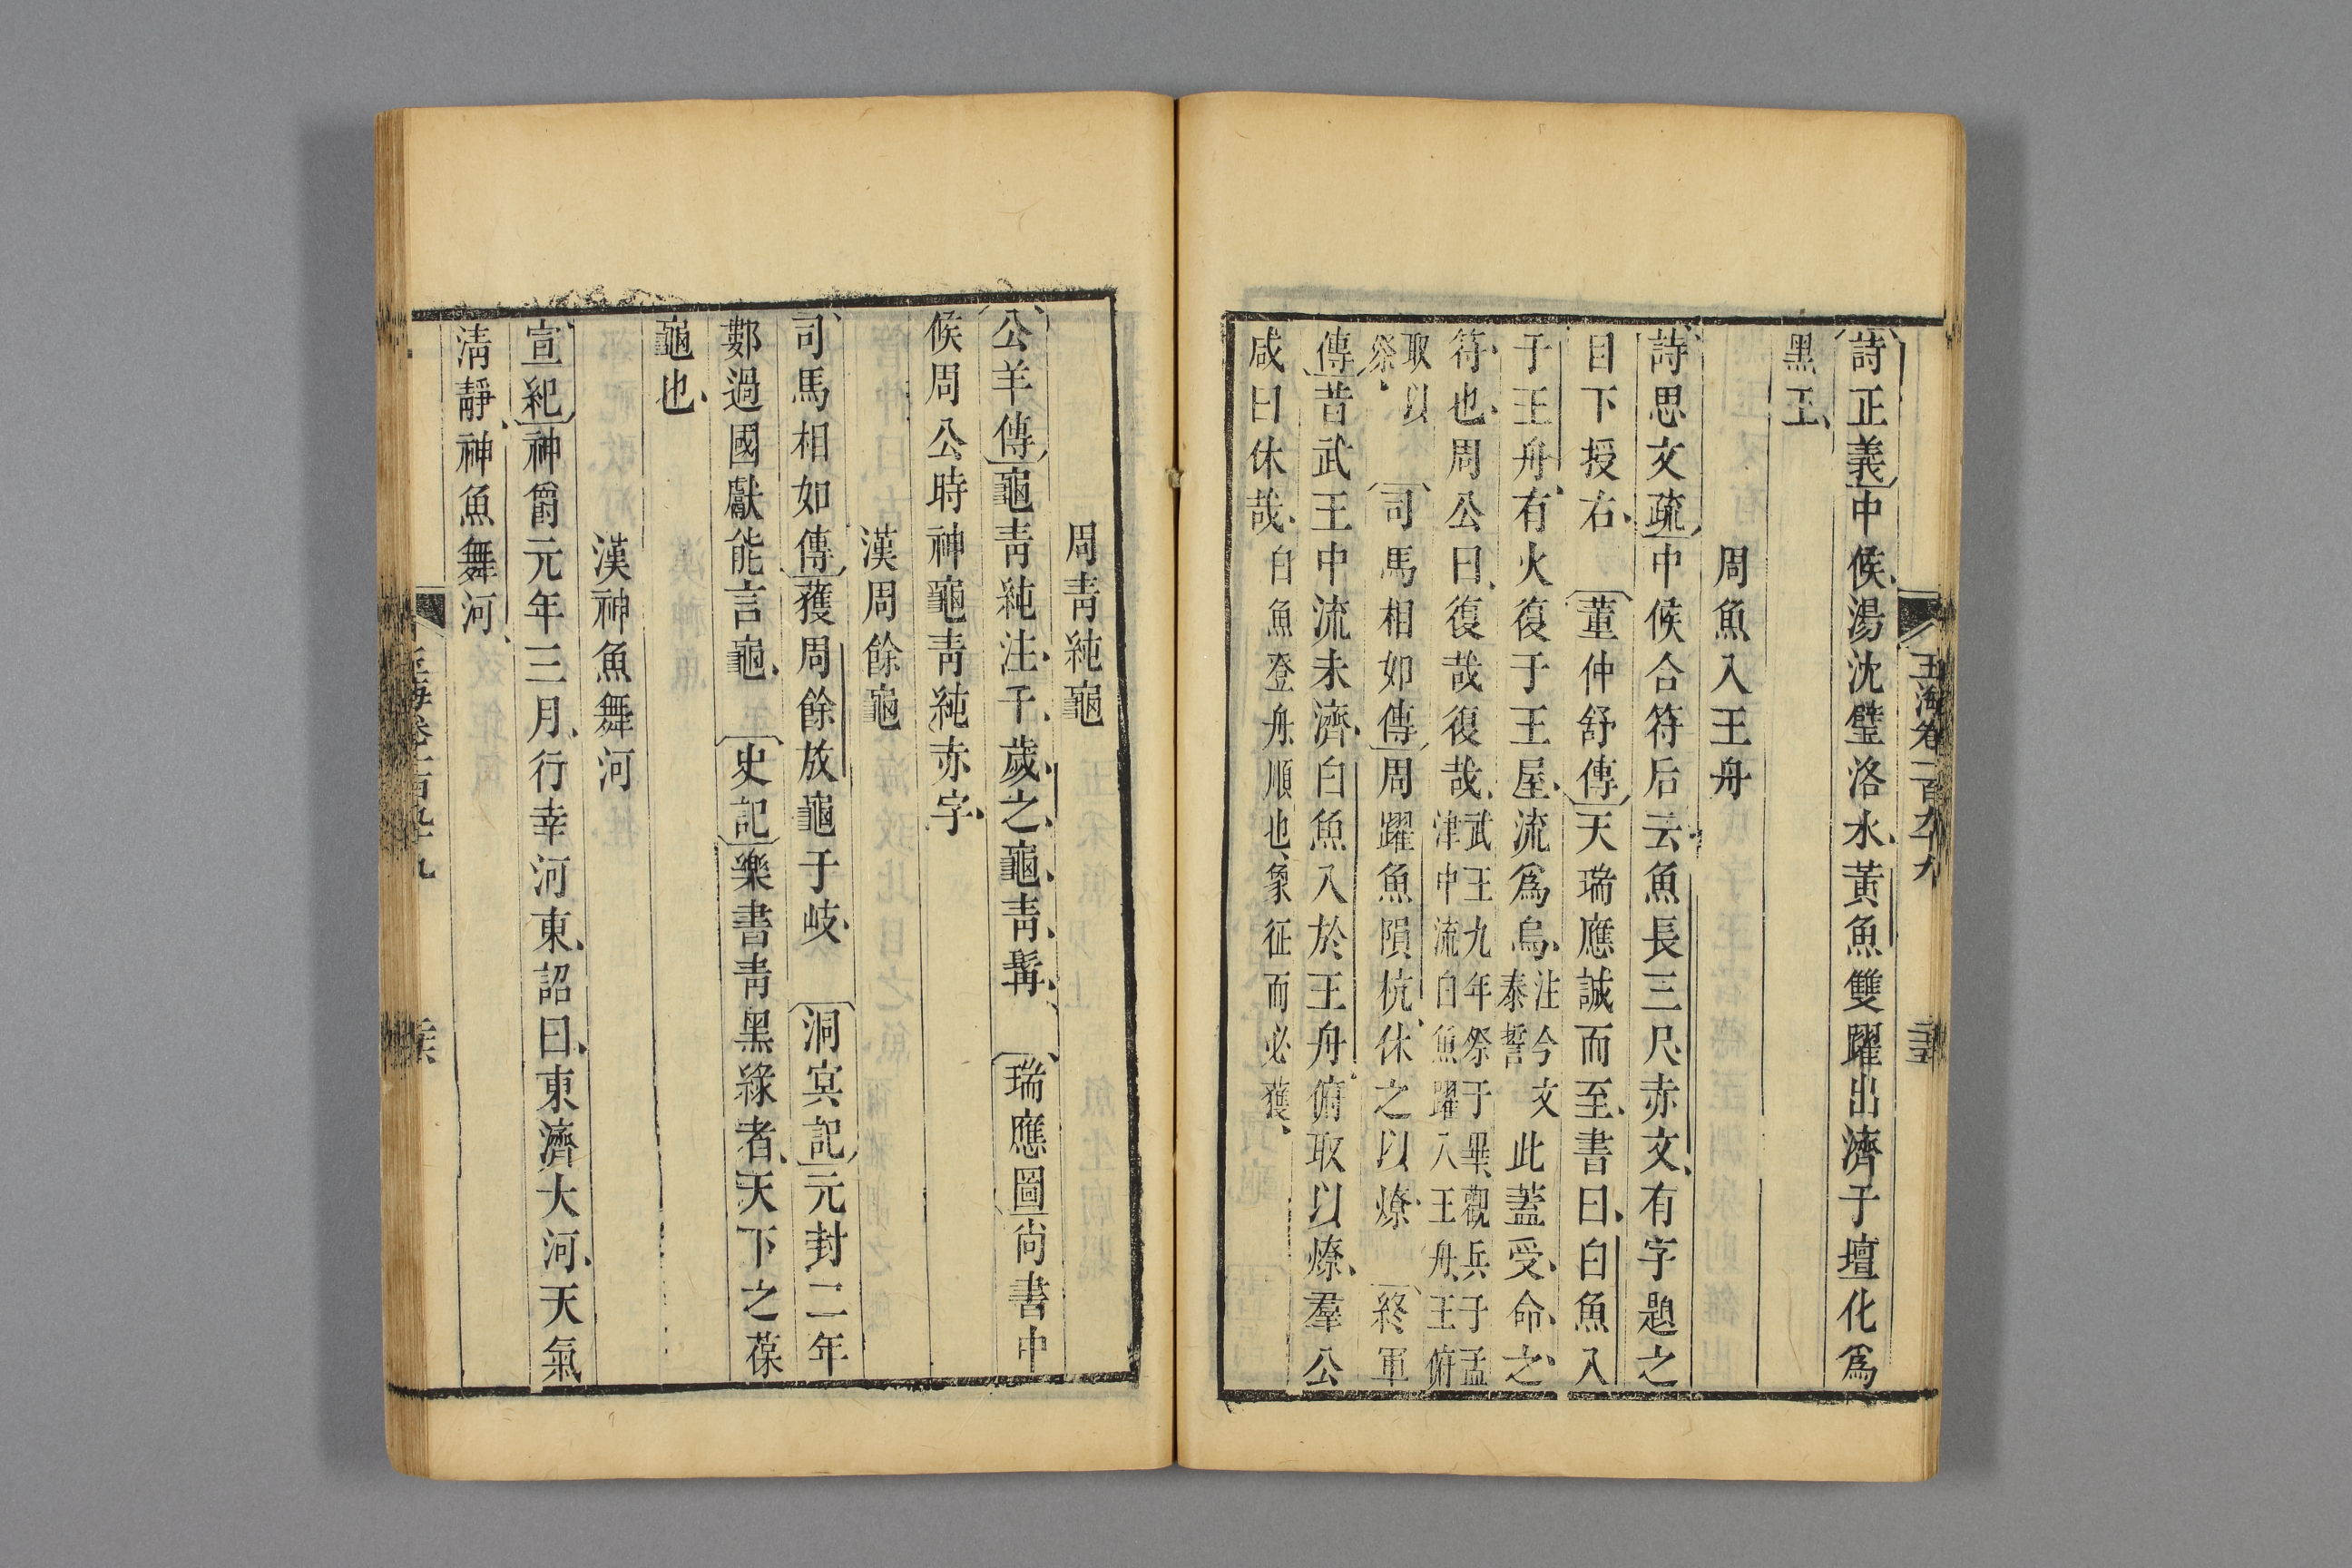 玉海卷一百九十九
詩正義中候湯沈璧洛水黃魚雙躍出濟于壇化爲
黑玉
周魚入王舟
詩思文疏中候合符后云魚長三尺赤文有字題之
目下授右 董仲舒傳天瑞應誠而至書曰白魚入
于王舟有火復于王屋流爲烏注今文泰誓此蓋受命之
符也周公曰復哉復哉武王九年祭于畢觀兵于孟津中流白魚躍入王舟王俯
取以祭 司馬相如傳周躍魚隕杭休之以燎 終軍
傳昔武王中流未濟白魚入於王舟俯取以燎羣公
咸曰休哉白魚登舟順也象征而必獲
周靑純龜
公羊傳龜靑純注千歲之龜靑髯 瑞應圖尚書中
候周公時神龜靑純赤字
漢周餘龜
司馬相如傳獲周餘放龜于岐 洞冥記元封二年
鄭過國獻能言龜 史記樂書靑黑緣者天下之葆
龜也
漢神魚舞河
宣紀神爵元年三月行幸河東詔曰東濟大河天氣
淸靜神魚舞河